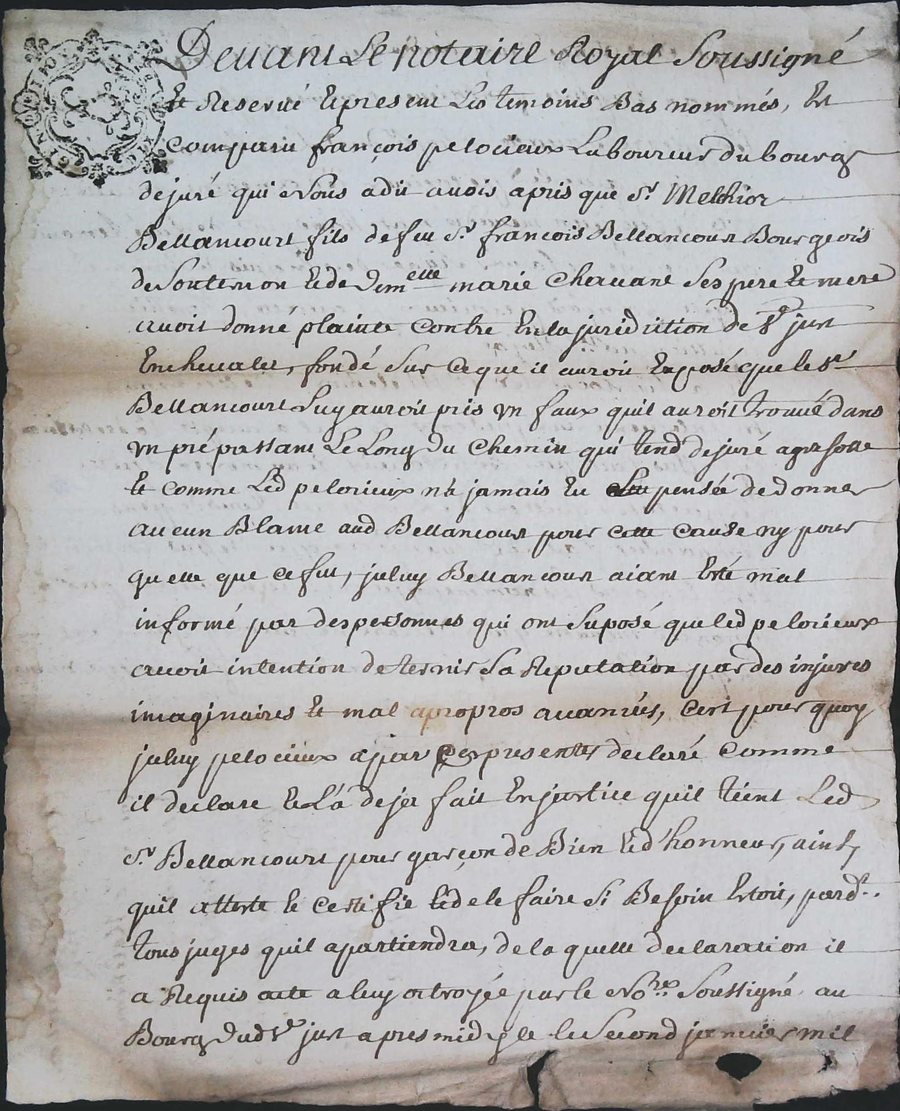 Devant Le notaire Royal Soussigné
Et Reservé Et present Les temoins Bas nommés, Et
Comparu françois pelocieux Laboureur du bourg
de juré qui Nous a dit avoir apris que Sr. Melchior
Bellancourt fils de feu Sr. françois Bellancour Bourgeois
de Souternon et de Demelle marie Chavane ses pere Et mere
avoit donné plainte contre En la juridiction de St just
En chevalet, fondé sur ce que il auroit Exposé que le Sr.
Bellancourt Luy auroit pris un faux quil auroit trouvé dans
un pré passant Le Long du chemin qui tend de juré a gresolle
Et comme Led pelocieux n'a jamais Eu pensée de donner
aucun Blame aud Bellancour pour cette cause ny pour
quelle que ce fut, jceluy Bellancour aiant Esté mal
informé par des personnes qui ont Suposé que led pelocieux
avoit intention de ternir Sa Reputation par des injures
imaginaires Et mal apropros avancées, C'est pour quoy
jceluy pelocieux a par ces presentes declaré comme
il declare Et L'a deja fait En justice quil tient Led
Sr. Bellancourt pour garçon de Bien Et d'honneur, ainsy
quil atteste Et certifie Et de le faire Si Besoin Estoit, pardt.
tous juges quil apartiendra, de la quelle declaration il
a Requis acte a luy octroyée par le Nore. Soussigné au
Bourg dud St just apres midy le Le Second janvier mil